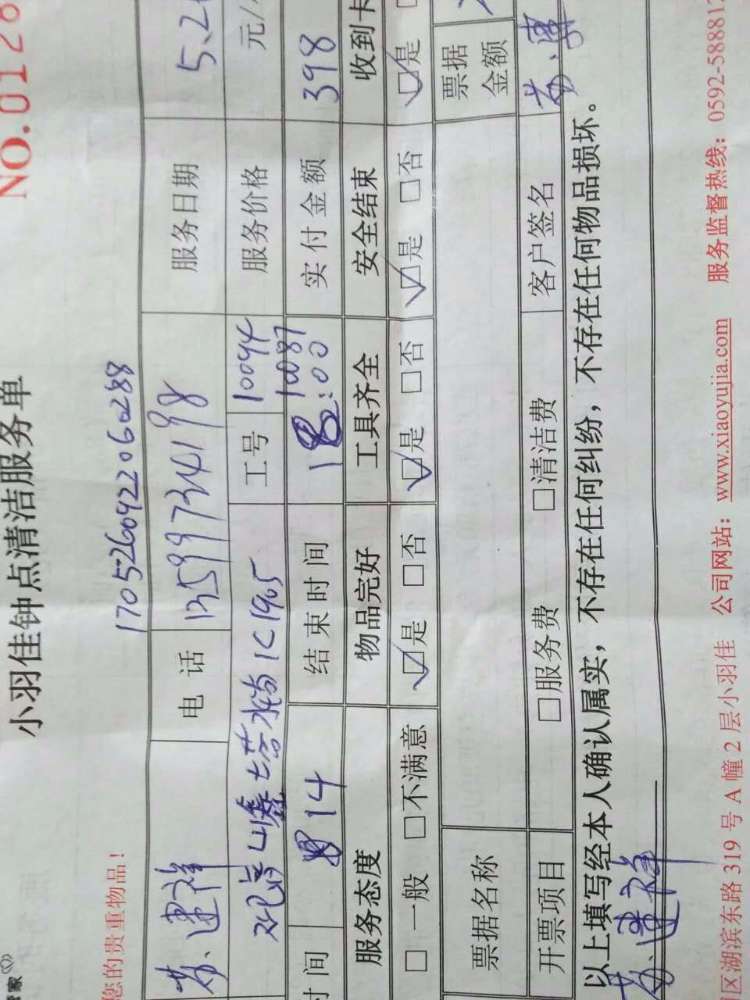 小羽佳钟点清洁服务单 NO.0128
您的贵重物品！ 1705260922060288
电话 13599734198 服务日期 5.2
1C1905 工号 10094 10087 服务价格 元/
时间 14 结束时间 18:00 实付金额 398
服务态度 物品完好 工具齐全 安全结束 收到卡
□一般 □不满意 ☑是 □否 ☑是 □否 ☑是 □否 ☑是
票据名称 票据金额
开票项目 □服务费 □清洁费 客户签名
以上填写经本人确认属实，不存在任何纠纷，不存在任何物品损坏。
区湖滨东路 319 号 A 幢 2 层小羽佳 公司网站：www.xiaoyujia.com 服务监督热线：0592-588812